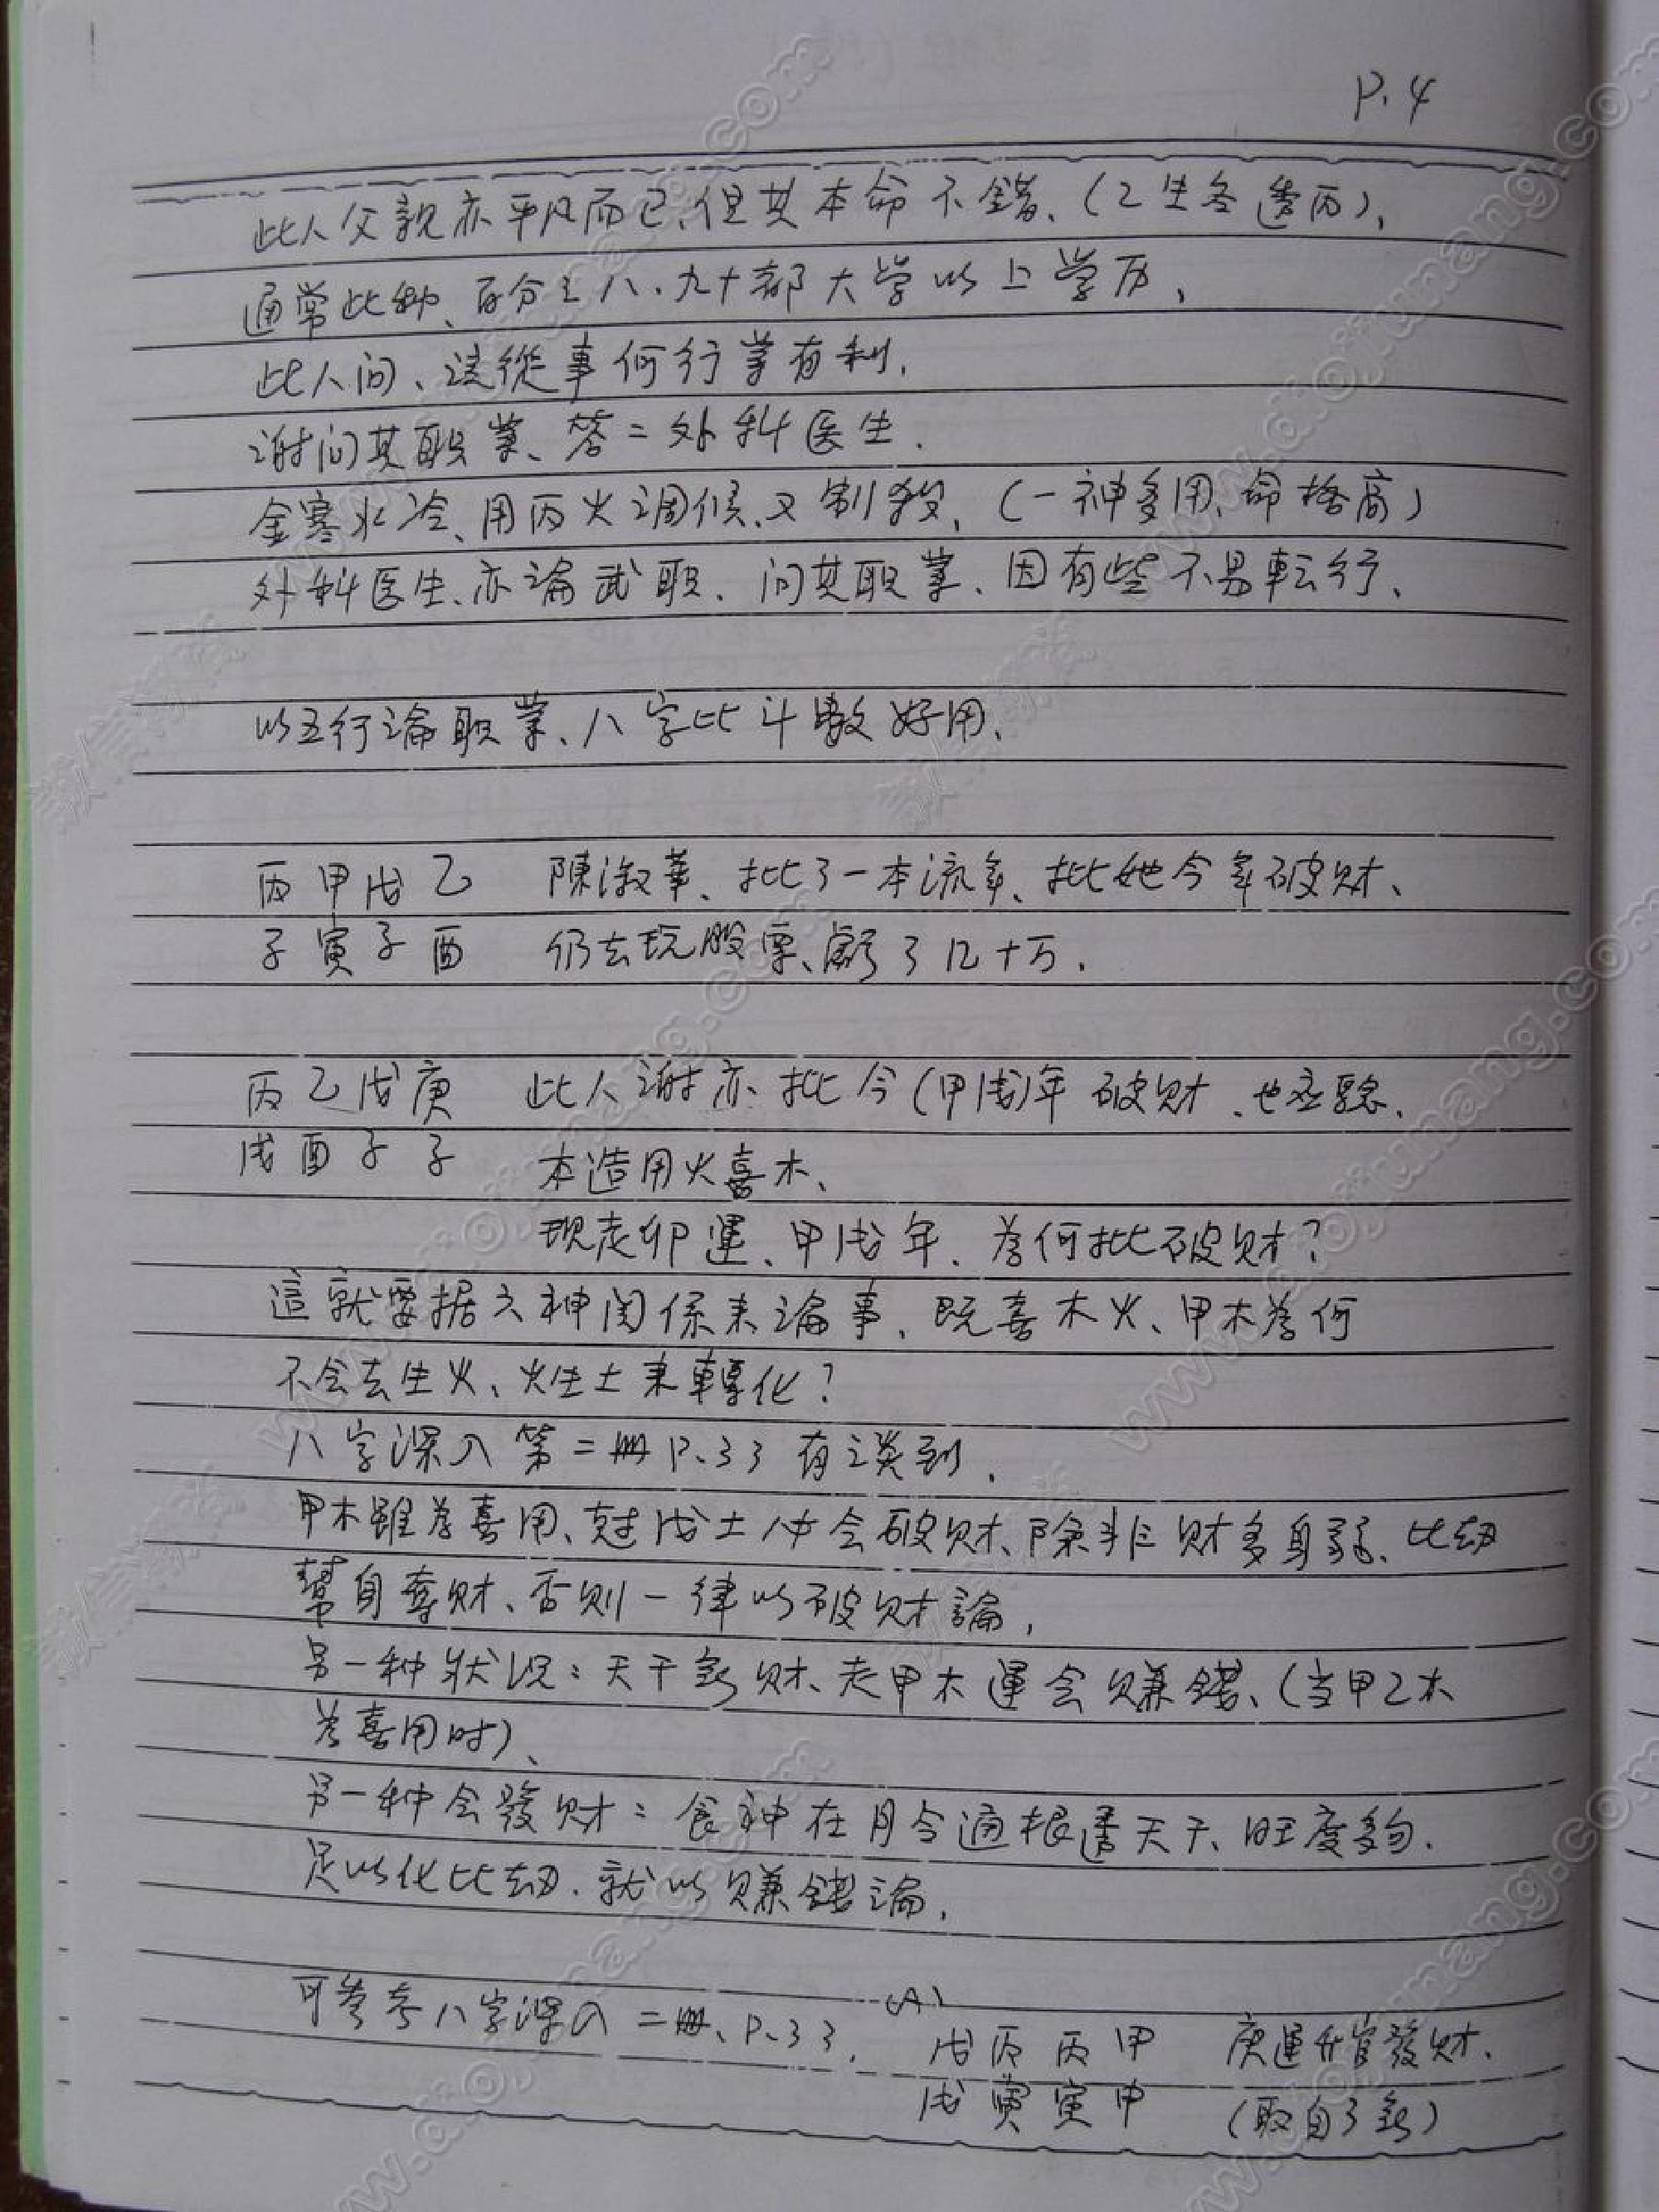 P.4
此人父親亦平凡而已、但其本命不錯、(乙生冬透丙)、
通常此种、百分之八、九十都大学以上学历、
此人问、該從事何行業有利、
謝问其职業、答:外科医生.
金寒水冷、用丙火调候、又制殺、(一神多用、命格高)
外科医生、亦論武职. 问其职業、因有些不易転行、
以五行論职業、八字比斗數好用、
丙甲戊乙 陳淑華、批了一本流年、批她今年破财、
子寅子酉 仍去玩股票、虧了几十万.
丙乙戊庚 此人謝亦批今(甲戌)年破财、也应驗.
戌酉子子 本造用火喜木、
現走卯運、甲戌年、為何批破财?
這就要据六神関係来論事、既喜木火、甲木為何
不会去生火、火生土来轉化?
八字深入第二冊P.33有談到.
甲木雖為喜用、尅戊土仍会破财、除非财多身弱、比劫
幫身奪财、否则一律以破财論,
另一种狀况:天干無财、走甲木運会赚錢、(当甲乙木
為喜用时)、
另一种会發财:食神在月令通根透天干、旺度夠.
足以化比劫.就以赚錢論,
可參考八字深入二冊、P.33,
(A)
戊丙丙甲 庚運升官發财.
戌寅寅申 (取自了無)
教信教学
www.daojiuhang.com